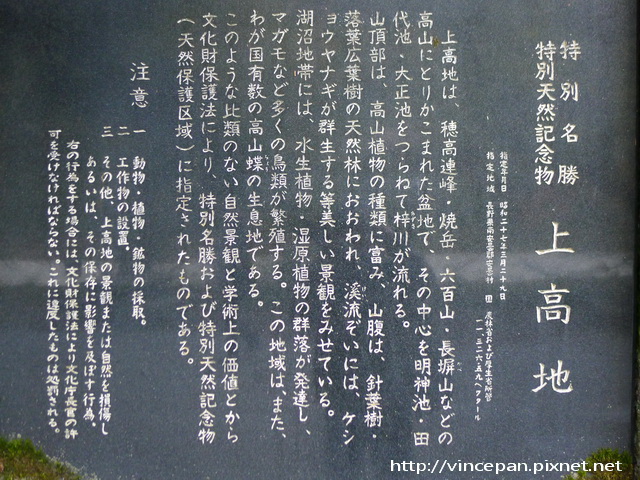 特別名勝
特別天然記念物
上高地
指定年月日 昭和二十七年三月二十九日
指定地域 長野県南安曇郡安曇村
農林省および厚生省所管
一一、三二六・五九ヘクタール
上高地は、穂高連峰・焼岳・六百山・長塀山などの
高山にとりかこまれた盆地で、その中心を明神池・田
代池・大正池をつらねて梓川が流れる。
山頂部は、高山植物の種類に富み、山腹は、針葉樹・
落葉広葉樹の天然林におおわれ、渓流ぞいには、ケシ
ョウヤナギが群生する等美しい景観をみせている。
湖沼地帯には、水生植物・湿原植物の群落が発達し、
マガモなど多くの鳥類が繁殖する。この地域は、また、
わが国有数の高山蝶の生息地である。
このような比類のない自然景観と学術上の価値とから
文化財保護法により、特別名勝および特別天然記念物
(天然保護区域)に指定されたものである。
注意
一 動物・植物・鉱物の採取。
二 工作物の設置。
三 その他、上高地の景観または自然を損傷し
あるいは、その保存に影響を及ぼす行為。
右の行為をする場合には、文化財保護法により文化庁長官の許
可を受けなければならない。これに違反したものは処罰される。
http://vincepan.pixnet.net